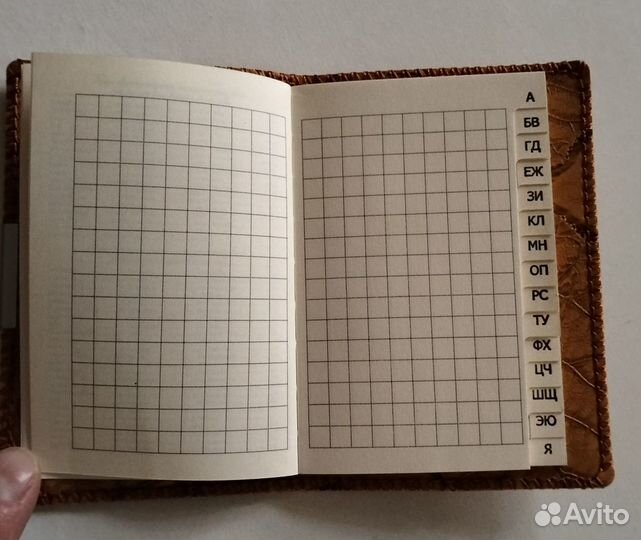 А
БВ
ГД
ЕЖ
ЗИ
КЛ
МН
ОП
РС
ТУ
ФХ
ЦЧ
ШЩ
ЭЮ
Я
Avito